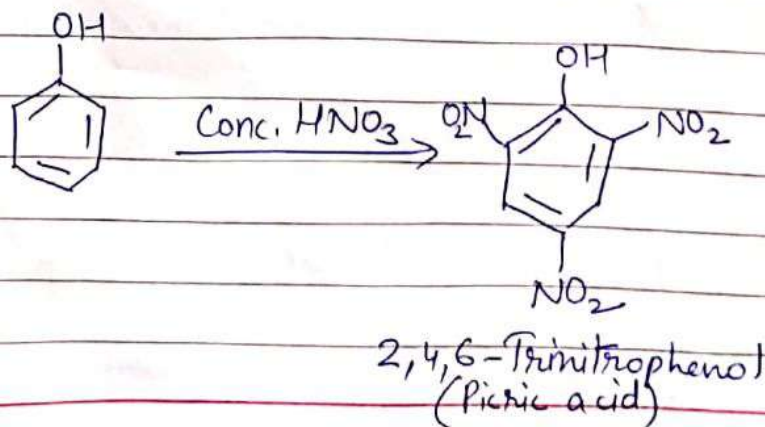 OH
OH
Conc. HNO3
O2N
NO2
NO2
2,4,6-Trinitrophenol
(Picric acid)